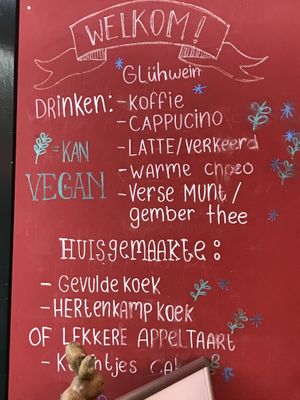 WELKOM!
GLühwein
DRINKEN: - KOFFIE
- CAPPUCINO
- LATTE/VERKEERD
- WARME CHOCO
- VERSE MUNT/
gember thee
= KAN
VEGAN
HUISGEMAAKTE:
- Gevulde koek
- HERTENKAMP KOEK
OF LEKKERE APPELTAART